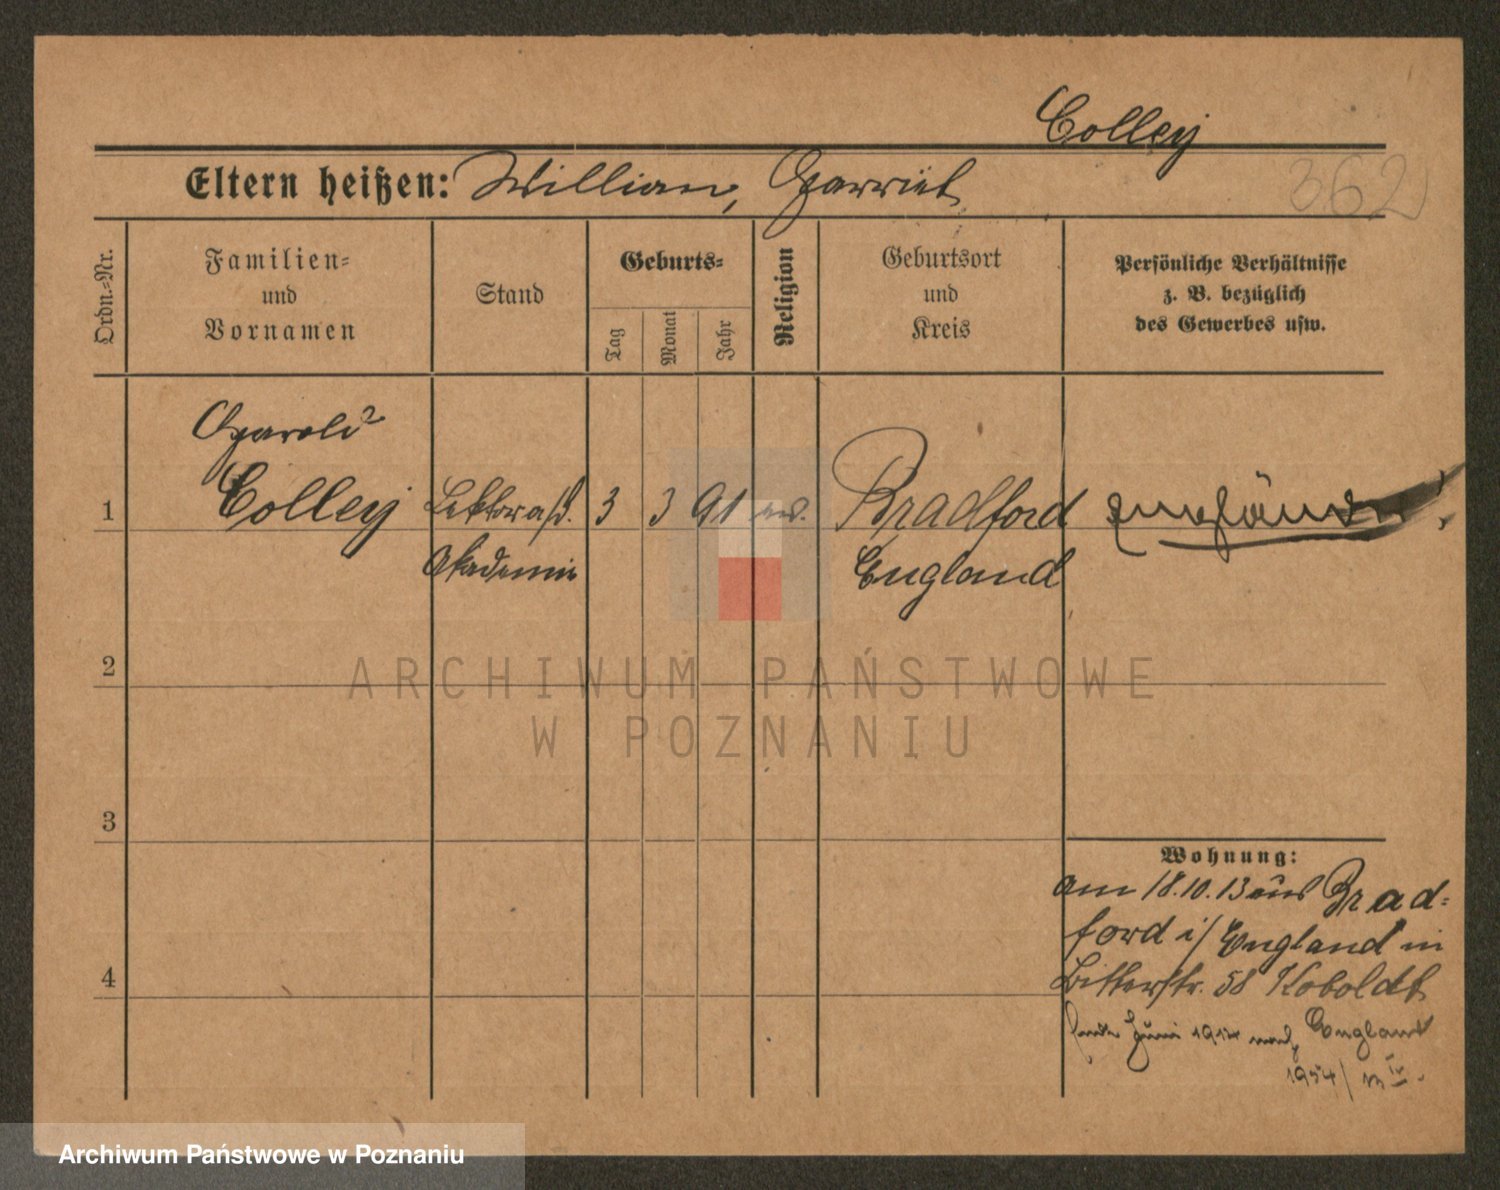 Colley
362
Eltern heißen: William, Harriet
Ordn.-Nr.
Familien-
und
Vornamen
Stand
Geburts-
Tag
Monat
Jahr
Religion
Geburtsort
und
Kreis
Persönliche Verhältnisse
z. B. bezüglich
des Gewerbes usw.
Harold
1 Colley Lektor a/d. 3 3 91 ev. Bradford Engländer
Akademie England
2
ARCHIWUM PAŃSTWOWE
W POZNANIU
3
Wohnung:
am 18.10.13 aus Brad-
ford i/ England in
Ritterstr. 38 Koboldt
4
Ende Juni 1914 nach England
1954/
Archiwum Państwowe w Poznaniu